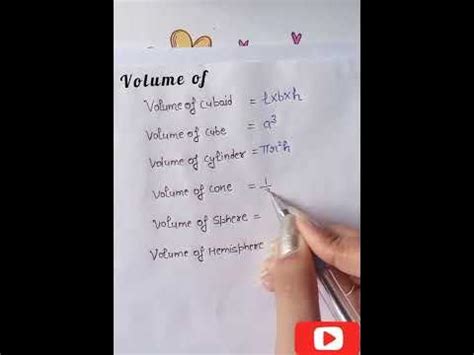 Volume of
Volume of cuboid = l×b×h
Volume of cube = a³
Volume of cylinder = πr²h
Volume of cone = 1/
Volume of Sphere =
Volume of Hemisphere